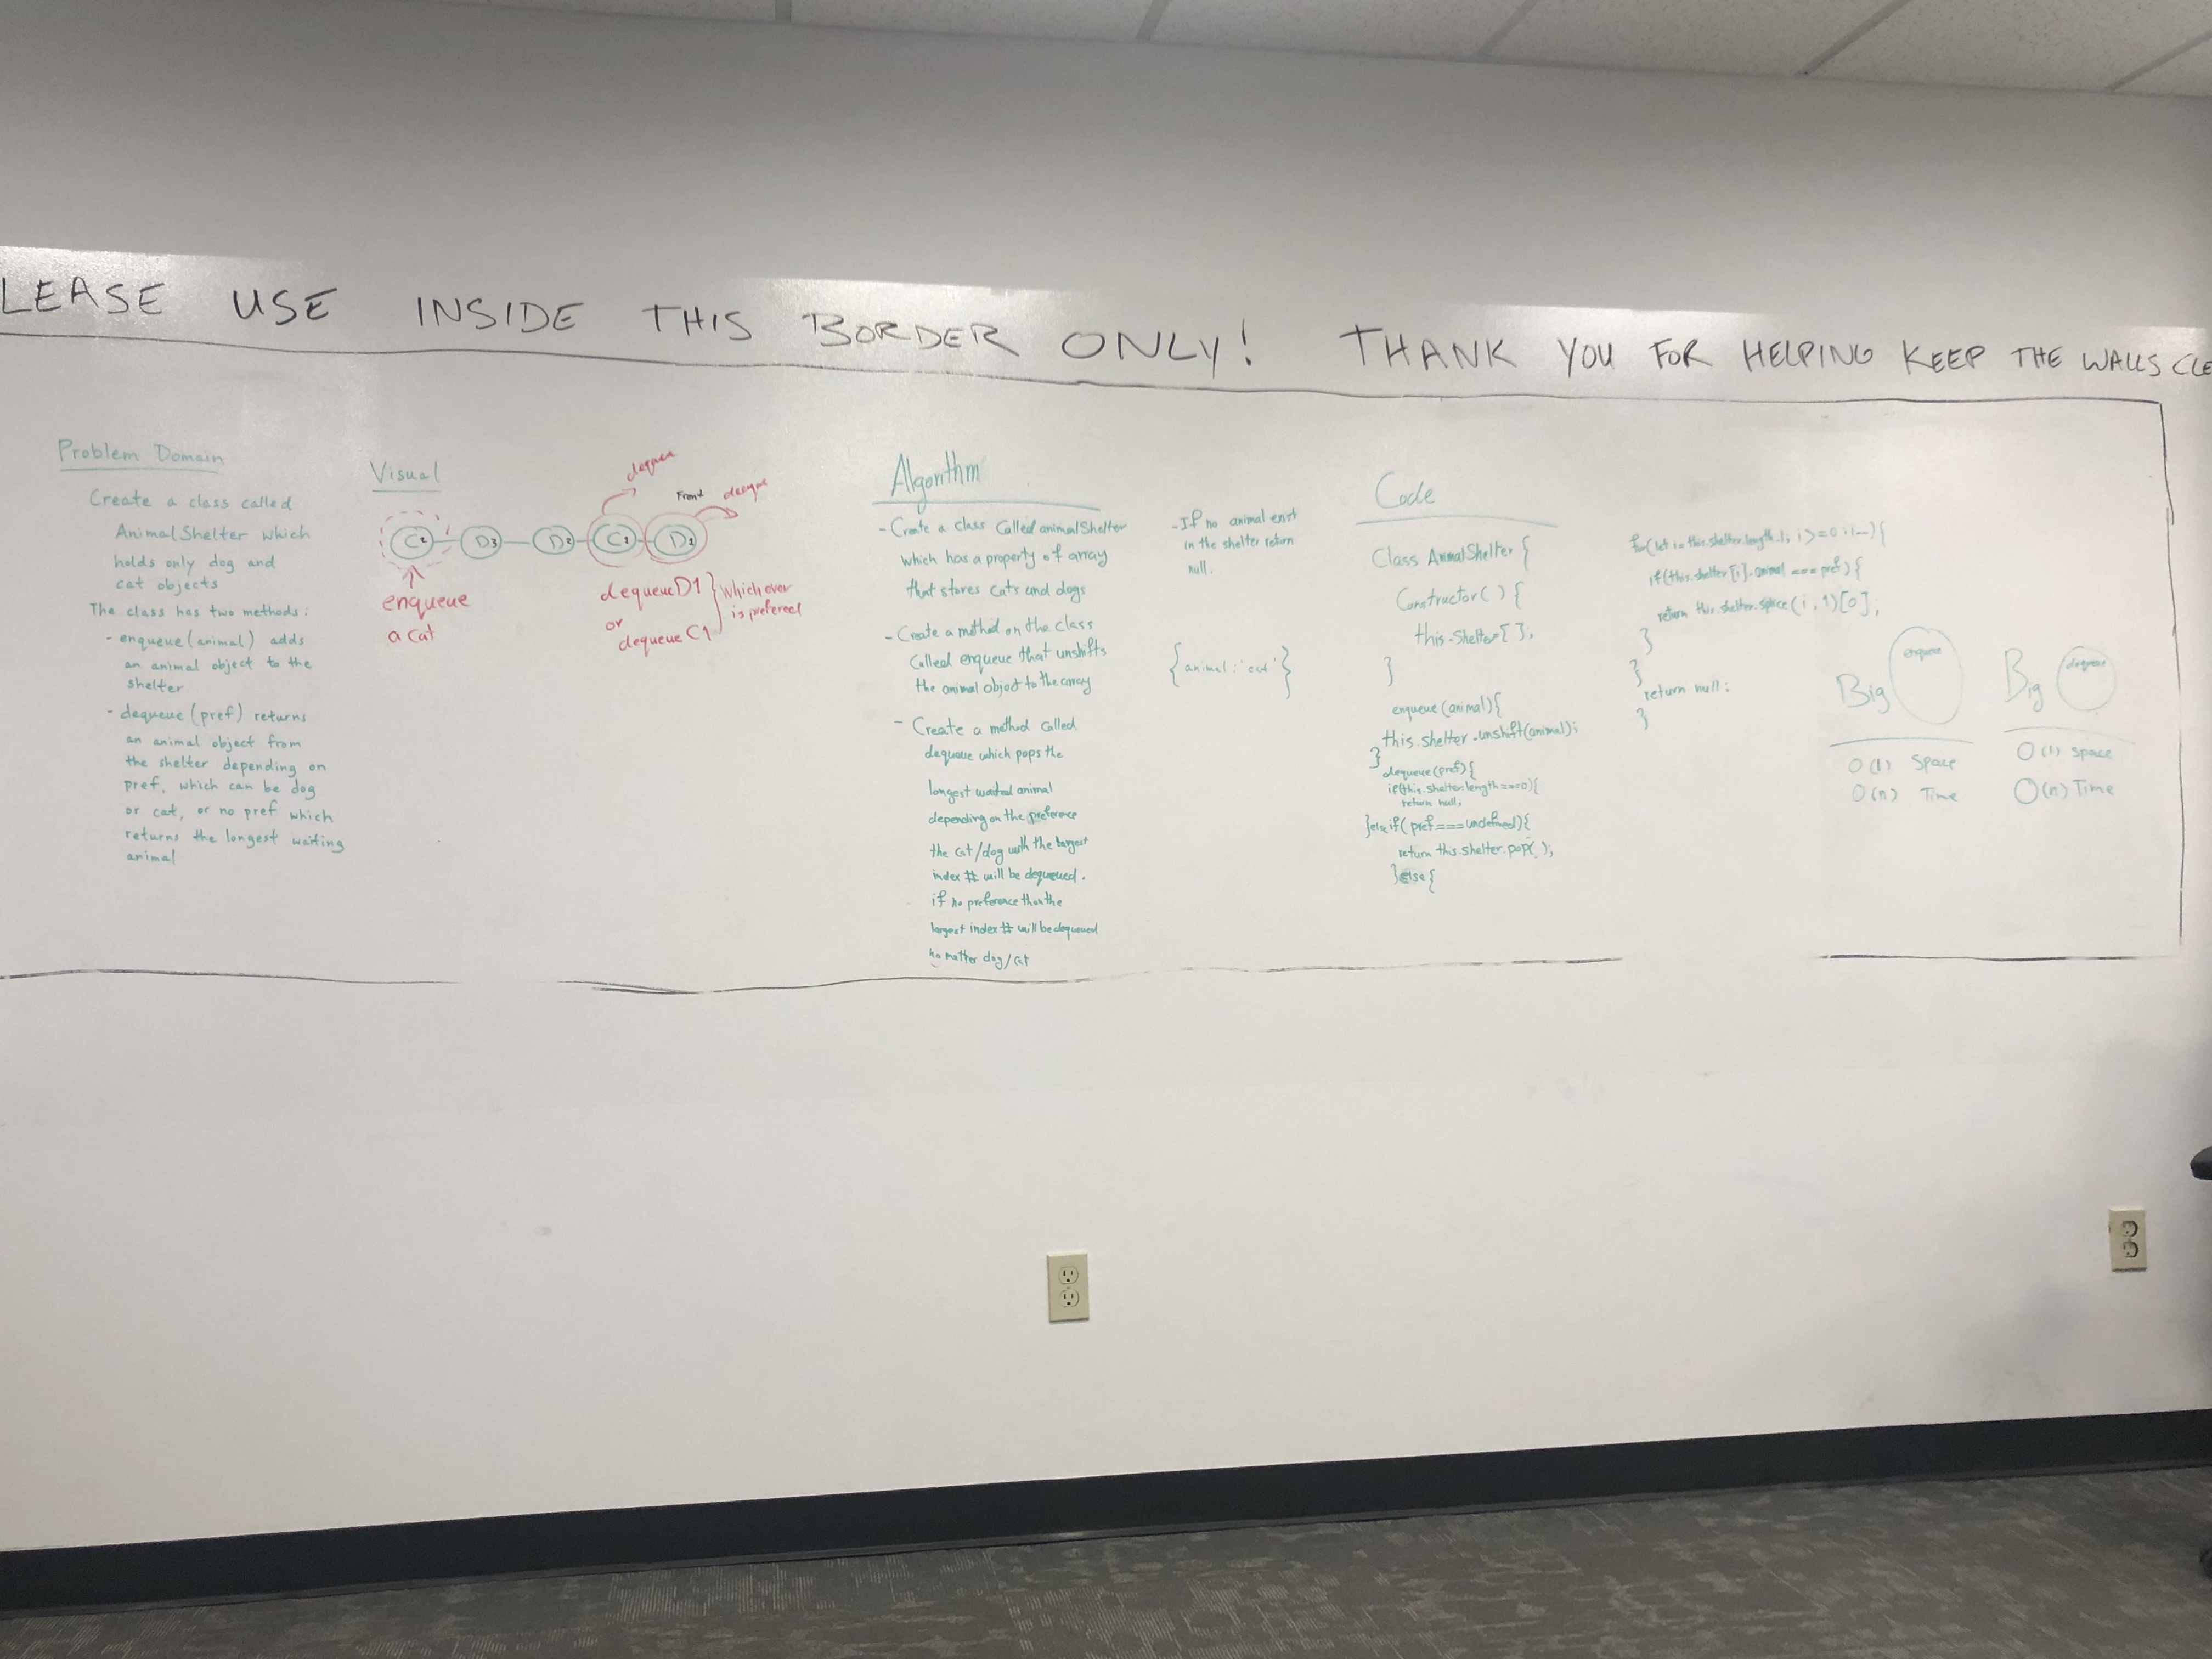 LEASE USE INSIDE THIS BORDER ONLY! THANK YOU FOR HELPING KEEP THE WALLS CLE
Problem Domain
Create a class called
AnimalShelter which
holds only dog and
cat objects
The class has two methods:
- enqueue(animal) adds
an animal object to the
shelter
- dequeue(pref) returns
an animal object from
the shelter depending on
pref, which can be dog
or cat, or no pref which
returns the longest waiting
animal
Visual
dequeu
Front
C2 D3 D2 C1 D1
enqueue
a cat
dequeueD1
or
dequeue C1
} whichever
is prefered
Algorithm
- Create a class Called animalShelter
which has a property of array
that stores cats and dogs
- Create a method on the class
Called enqueue that unshifts
the animal object to the array
- Create a method called
dequeue which pops the
longest waited animal
depending on the preference
the cat/dog with the largest
index # will be dequeued.
if no preference than the
largest index # will be dequeued
no matter dog/cat
- If no animal exist
in the shelter return
null.
{animal: 'cat'}
Code
Class AnimalShelter {
Constructor() {
this.Shelter=[];
}
enqueue(animal){
this.shelter.unshift(animal);
}
dequeue(pref){
if(this.shelter.length===0){
return null;
}else if(pref===undefined){
return this.shelter.pop();
}else{
for(let i=this.shelter.length-1; i>=0; i--){
if(this.shelter[i].animal === pref){
return this.shelter.splice(i,1)[0];
}
}
return null;
}
Big
enqueue
O(1) Space
O(n) Time
Big
dequeue
O(1) Space
O(n) Time